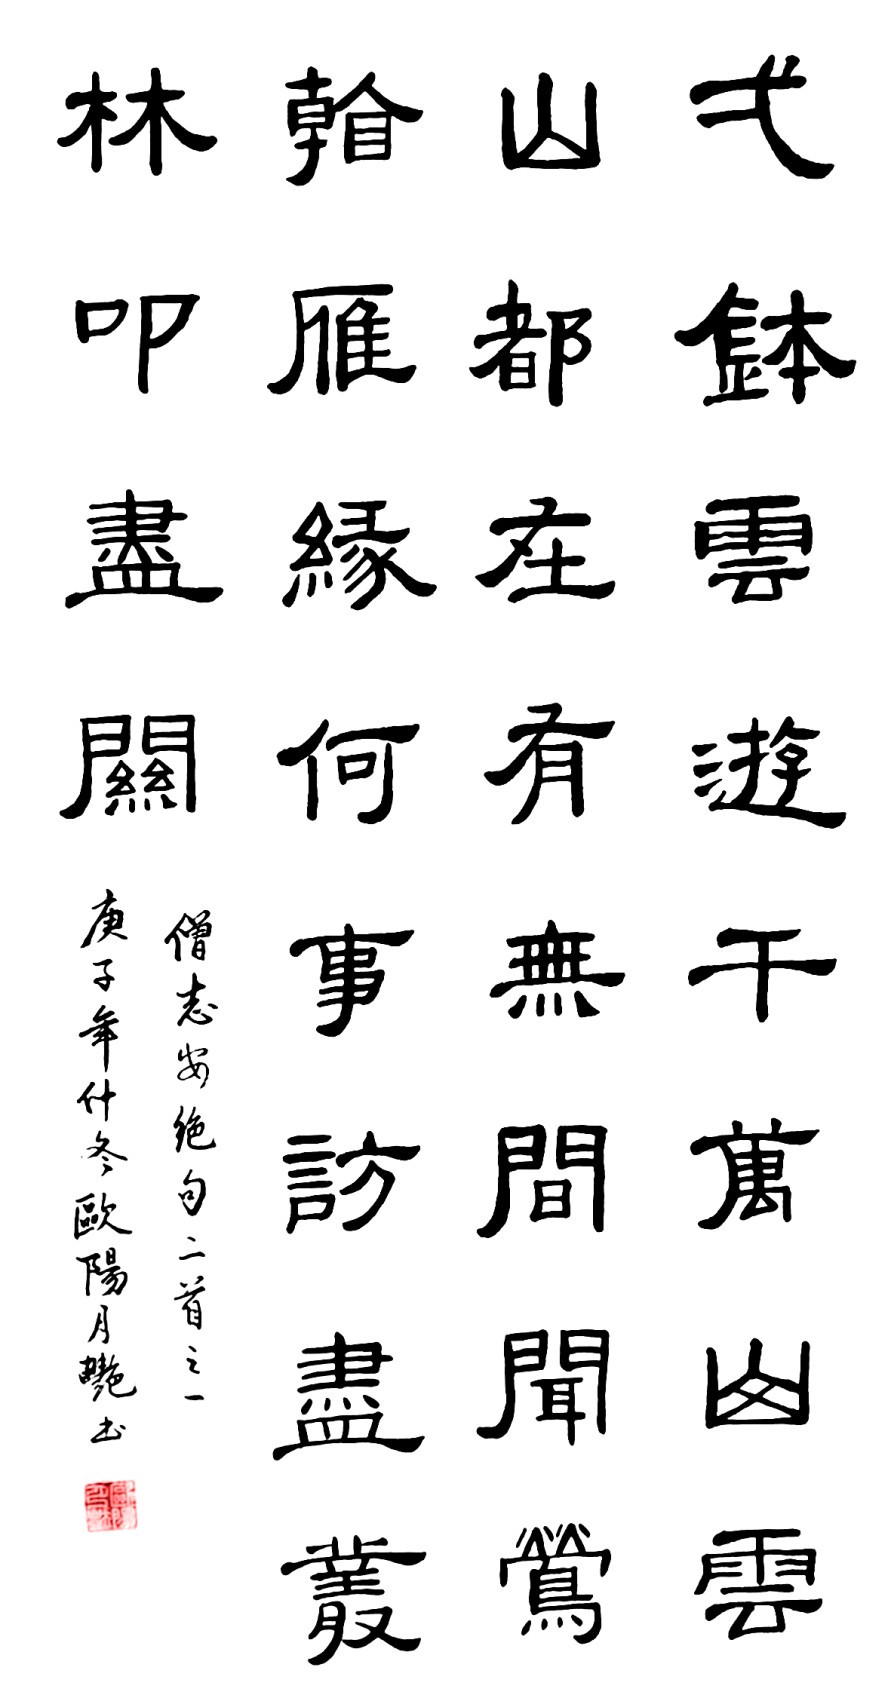 弌鉢雲遊千萬山雲
山都在有無間聞鶯
看雁緣何事訪盡叢
林叩盡關
僧志安絶句二首之一
庚子年仲冬歐陽月艷书